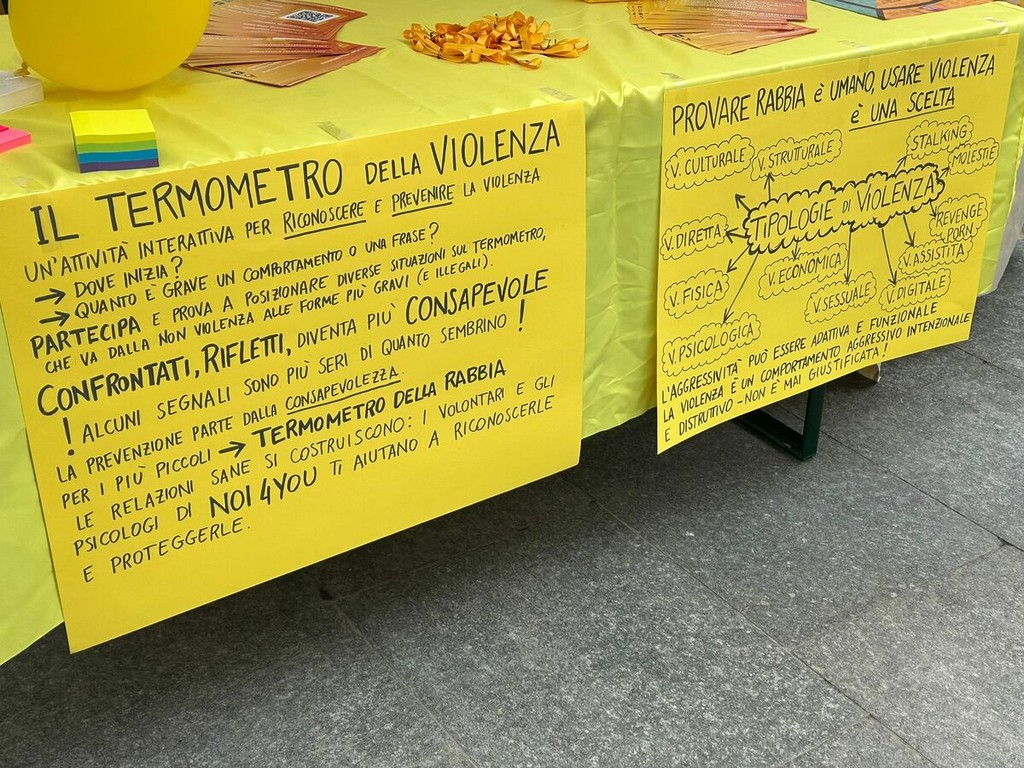 IL TERMOMETRO DELLA VIOLENZA
UN'ATTIVITÀ INTERATTIVA PER RICONOSCERE E PREVENIRE LA VIOLENZA
→ DOVE INIZIA?
→ QUANTO È GRAVE UN COMPORTAMENTO O UNA FRASE?
PARTECIPA E PROVA A POSIZIONARE DIVERSE SITUAZIONI SUL TERMOMETRO,
CHE VA DALLA NON VIOLENZA ALLE FORME PIÙ GRAVI (E ILLEGALI).
CONFRONTATI, RIFLETTI, DIVENTA PIU' CONSAPEVOLE
! ALCUNI SEGNALI SONO PIÙ SERI DI QUANTO SEMBRINO !
LA PREVENZIONE PARTE DALLA CONSAPEVOLEZZA.
PER I PIÙ PICCOLI → TERMOMETRO DELLA RABBIA
LE RELAZIONI SANE SI COSTRUISCONO: I VOLONTARI E GLI
PSICOLOGI DI NOI 4YOU TI AIUTANO A RICONOSCERLE
E PROTEGGERLE.
PROVARE RABBIA è UMANO, USARE VIOLENZA
è UNA SCELTA
V. CULTURALE
V. STRUTTURALE
STALKING
MOLESTIE
TIPOLOGIE DI VIOLENZA
V. DIRETTA
REVENGE
PORN
V. ASSISTITA
V. ECONOMICA
V. FISICA
V. SESSUALE
V. DIGITALE
V. PSICOLOGICA
L'AGGRESSIVITÀ PUÒ ESSERE ADATIVA E FUNZIONALE
LA VIOLENZA È UN COMPORTAMENTO AGGRESSIVO INTENZIONALE
E DISTRUTTIVO - NON È MAI GIUSTIFICATA!